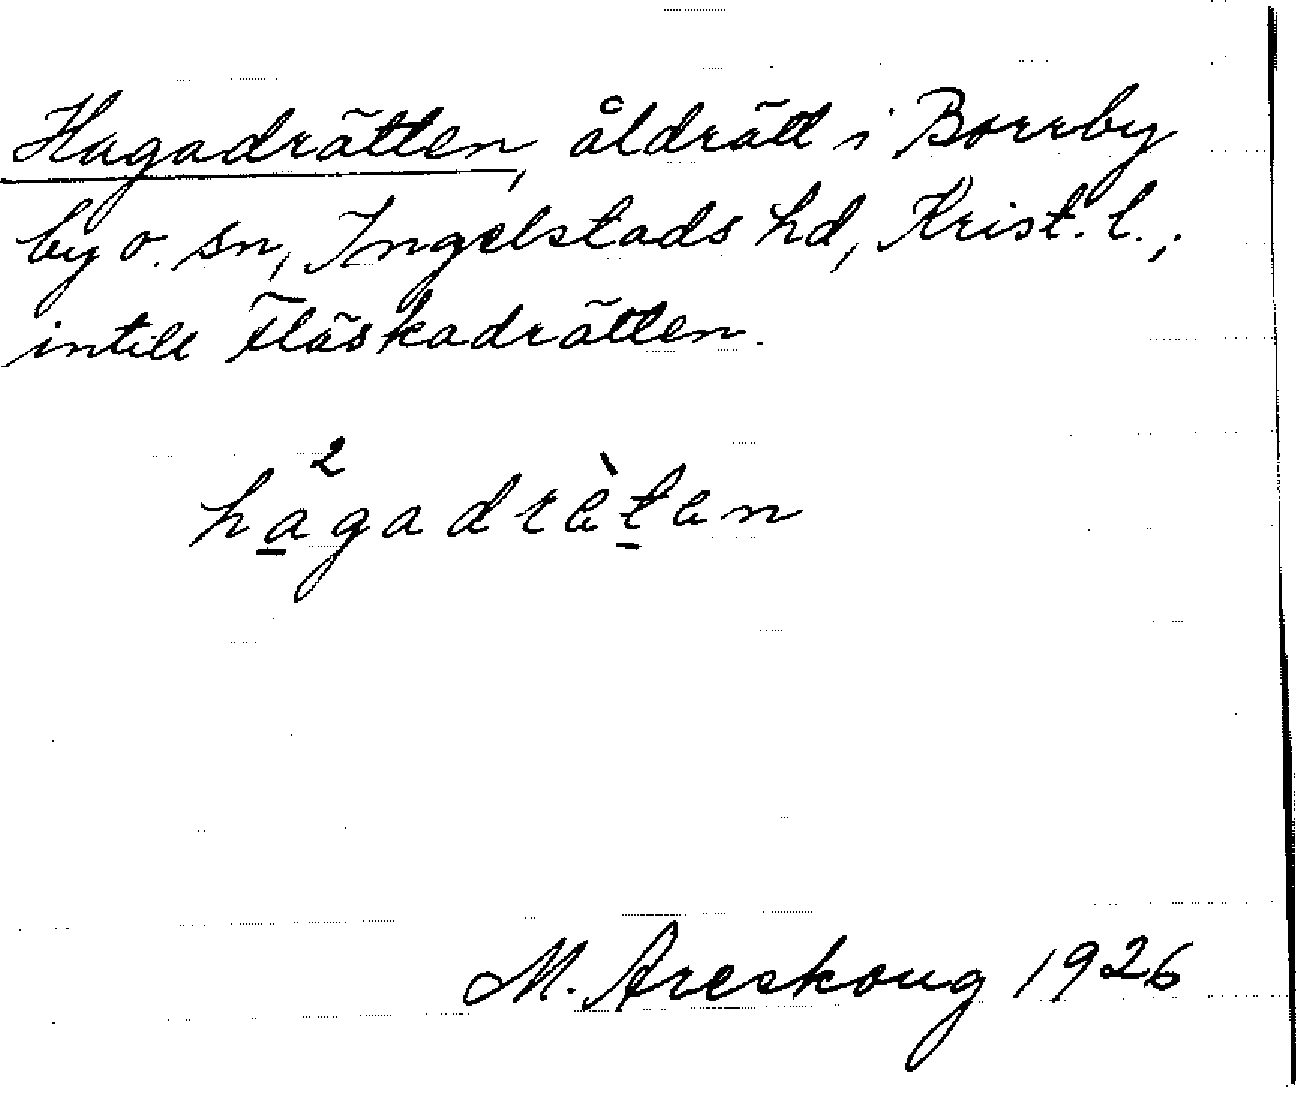 Hagadrätten, åldrätt i Borrby
by o. sn, Ingelstads hd, Krist. l.,
intill Fläskadrätten.
2
hagadrèten
M. Areskoug 1926